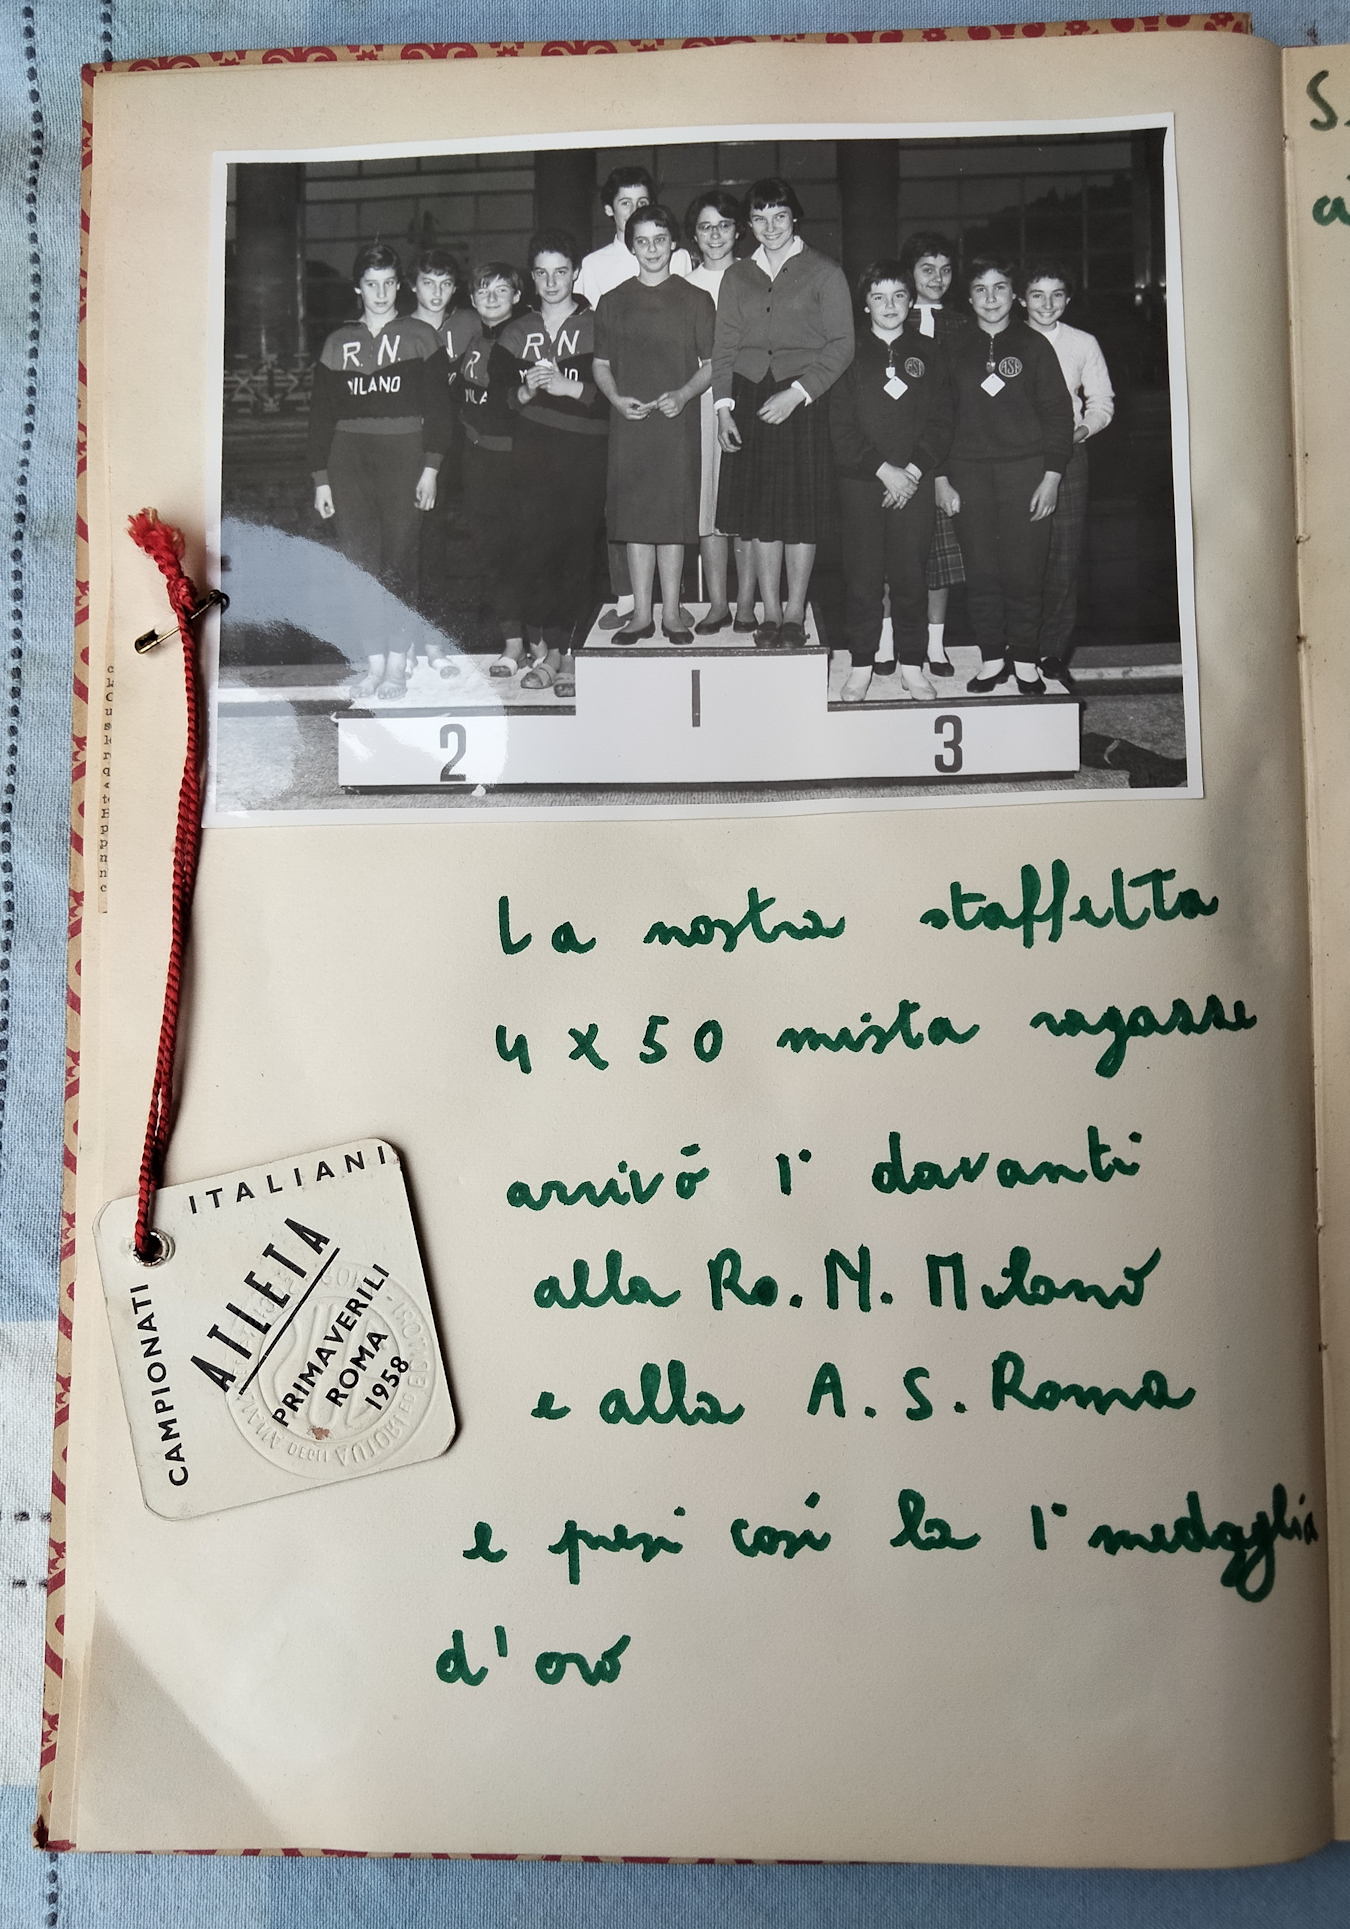 R. N.
MILANO
R N
1
2
3
ASR
La nostra staffetta
4 x 50 mista ragazze
arrivò 1° davanti
alla Ra. N. Milano
e alla A. S. Roma
e presi così la 1° medaglia
d'oro
CAMPIONATI
ITALIANI
ATLETA
PRIMAVERILI
ROMA
1958